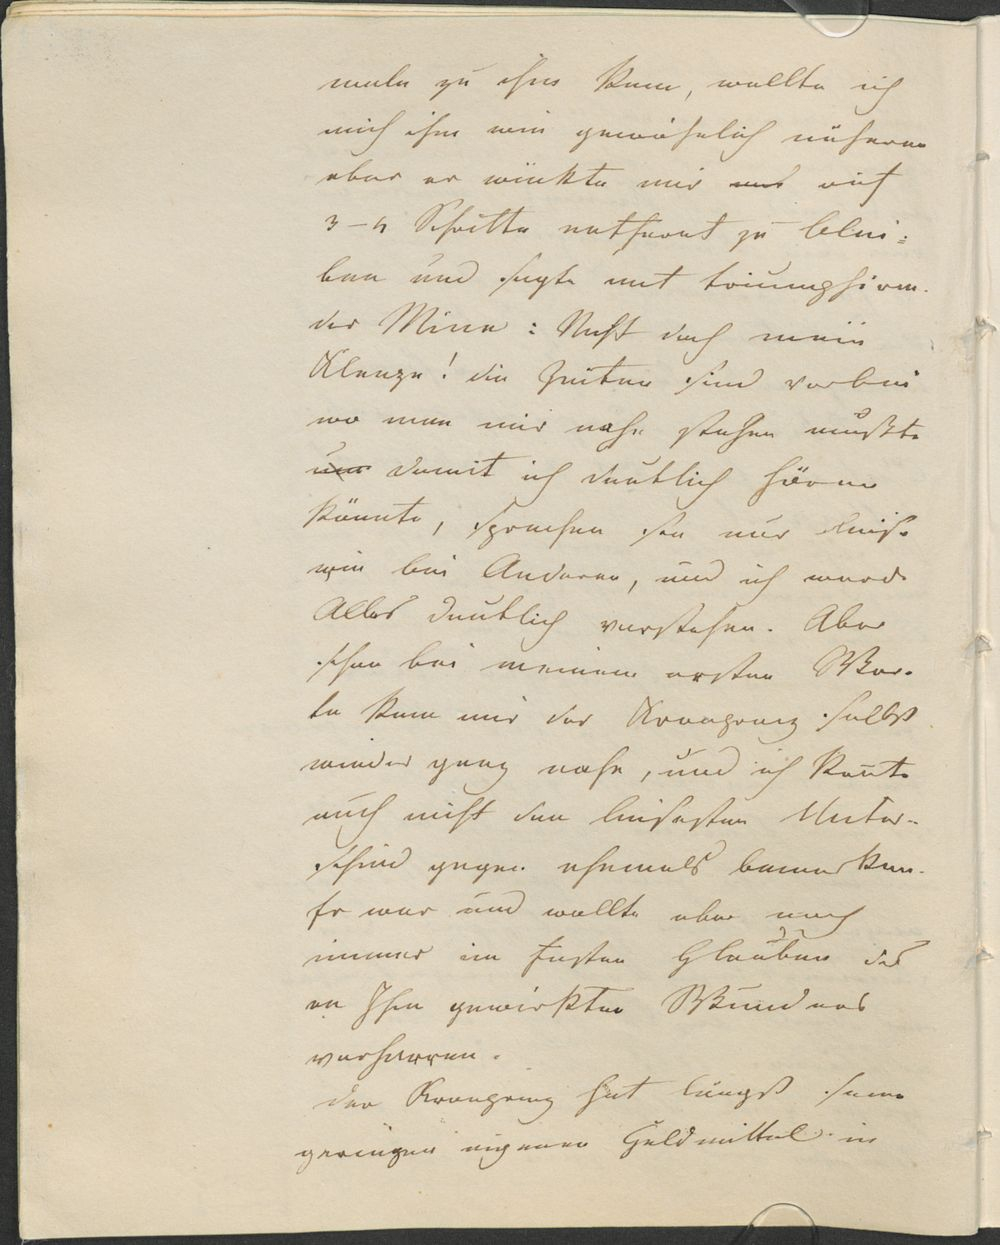 male zu ihm kam, wollte ich
mich ihm wie gewöhnlich nähern
aber er winkte mir auf
3–4 Schritte entfernt zu blei=
ben und sagte mit triumphiren-
der Mine: Nicht doch mein
Klenze! die Zeiten sind vorbei
wo man mir nahe stehen mußte
um damit ich deutlich hören
könnte, sprechen sie nur leise
wie bei Anderen, und ich werde
Alles deutlich verstehen. Aber
schon bei meinem ersten Wor-
te kam mir der Kronprinz selbst
wieder ganz nahe, und ich konte
auch nicht den leisesten Unter-
schied gegen ehemals bemerken.
Er war und wollte aber noch
immer im festen Glauben des
an Ihm gewirkten Wunders
verharren.
Der Kronprinz hat längst seine
geringen eigenen Geldmittel in